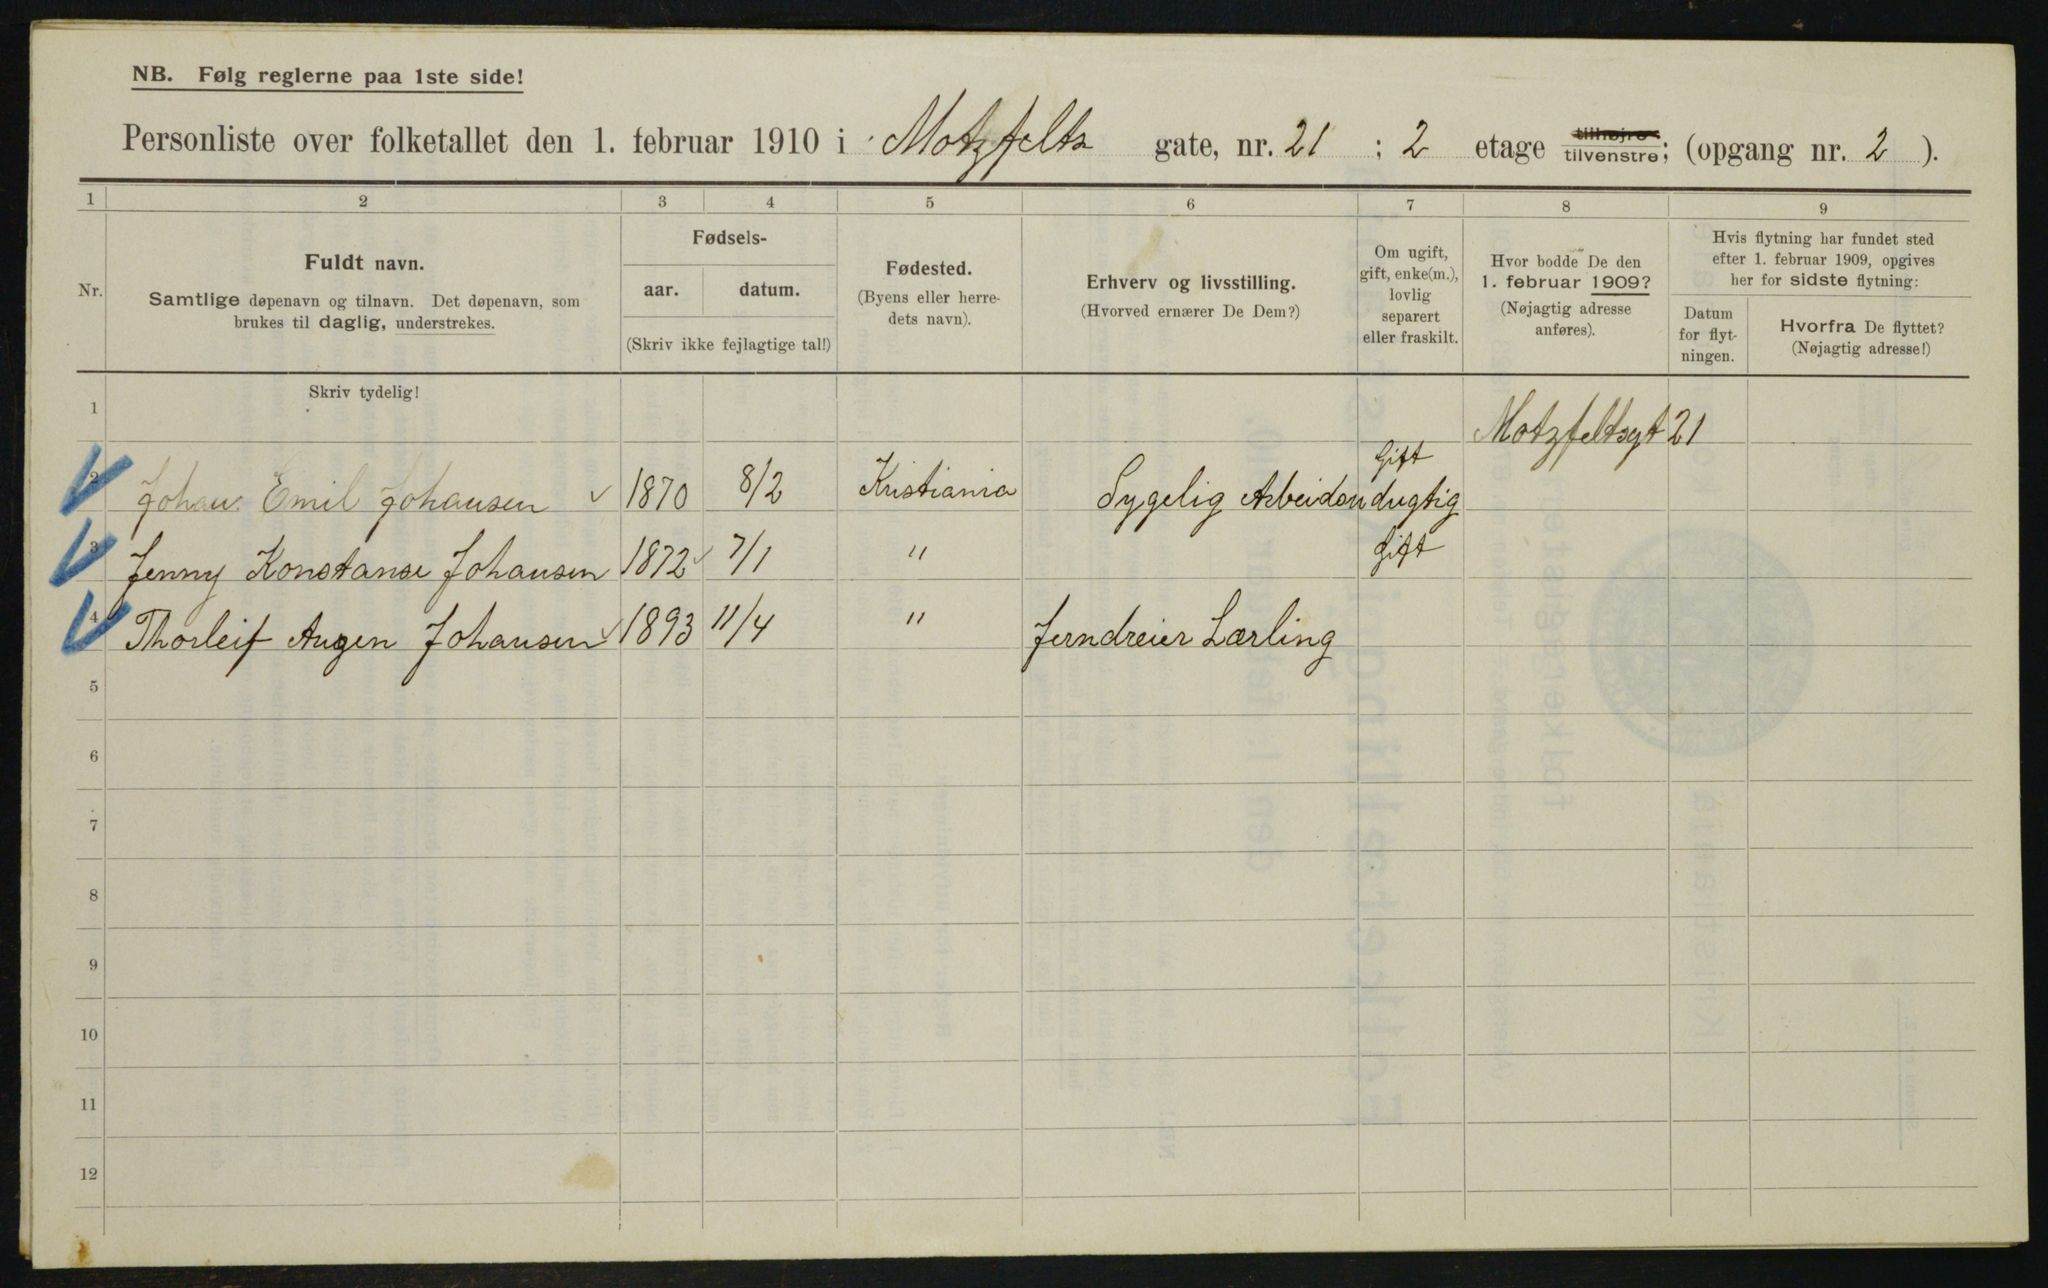 NB. Følg reglerne paa 1ste side!
Personliste over folketallet den 1. februar 1910 i Motzfelts gate, nr. 21 ; 2 etage tilhøjre tilvenstre; (opgang nr. 2 ).
1 2 3 4 5 6 7 8 9
Nr.
Fuldt navn.
Samtlige døpenavn og tilnavn. Det døpenavn, som
brukes til daglig, understrekes.
Fødsels-
aar. datum.
(Skriv ikke fejlagtige tal!)
Fødested.
(Byens eller herre-
dets navn).
Erhverv og livsstilling.
(Hvorved ernærer De Dem?)
Om ugift,
gift, enke(m.),
lovlig
separert
eller fraskilt.
Hvor bodde De den
1. februar 1909?
(Nøjagtig adresse
anføres).
Hvis flytning har fundet sted
efter 1. februar 1909, opgives
her for sidste flytning:
Datum
for flyt-
ningen.
Hvorfra De flyttet?
(Nøjagtig adresse!)
Skriv tydelig!
1 Motzfeltsgt 21
2 Johan Emil Johansen 1870 8/2 Kristiania Sygelig Arbeidsudugtig Gift
3 Jenny Konstanse Johansen 1872 7/1 " Gift
4 Thorleif Augen Johansen 1893 11/4 " Jerndreier Lærling
5
6
7
8
9
10
11
12